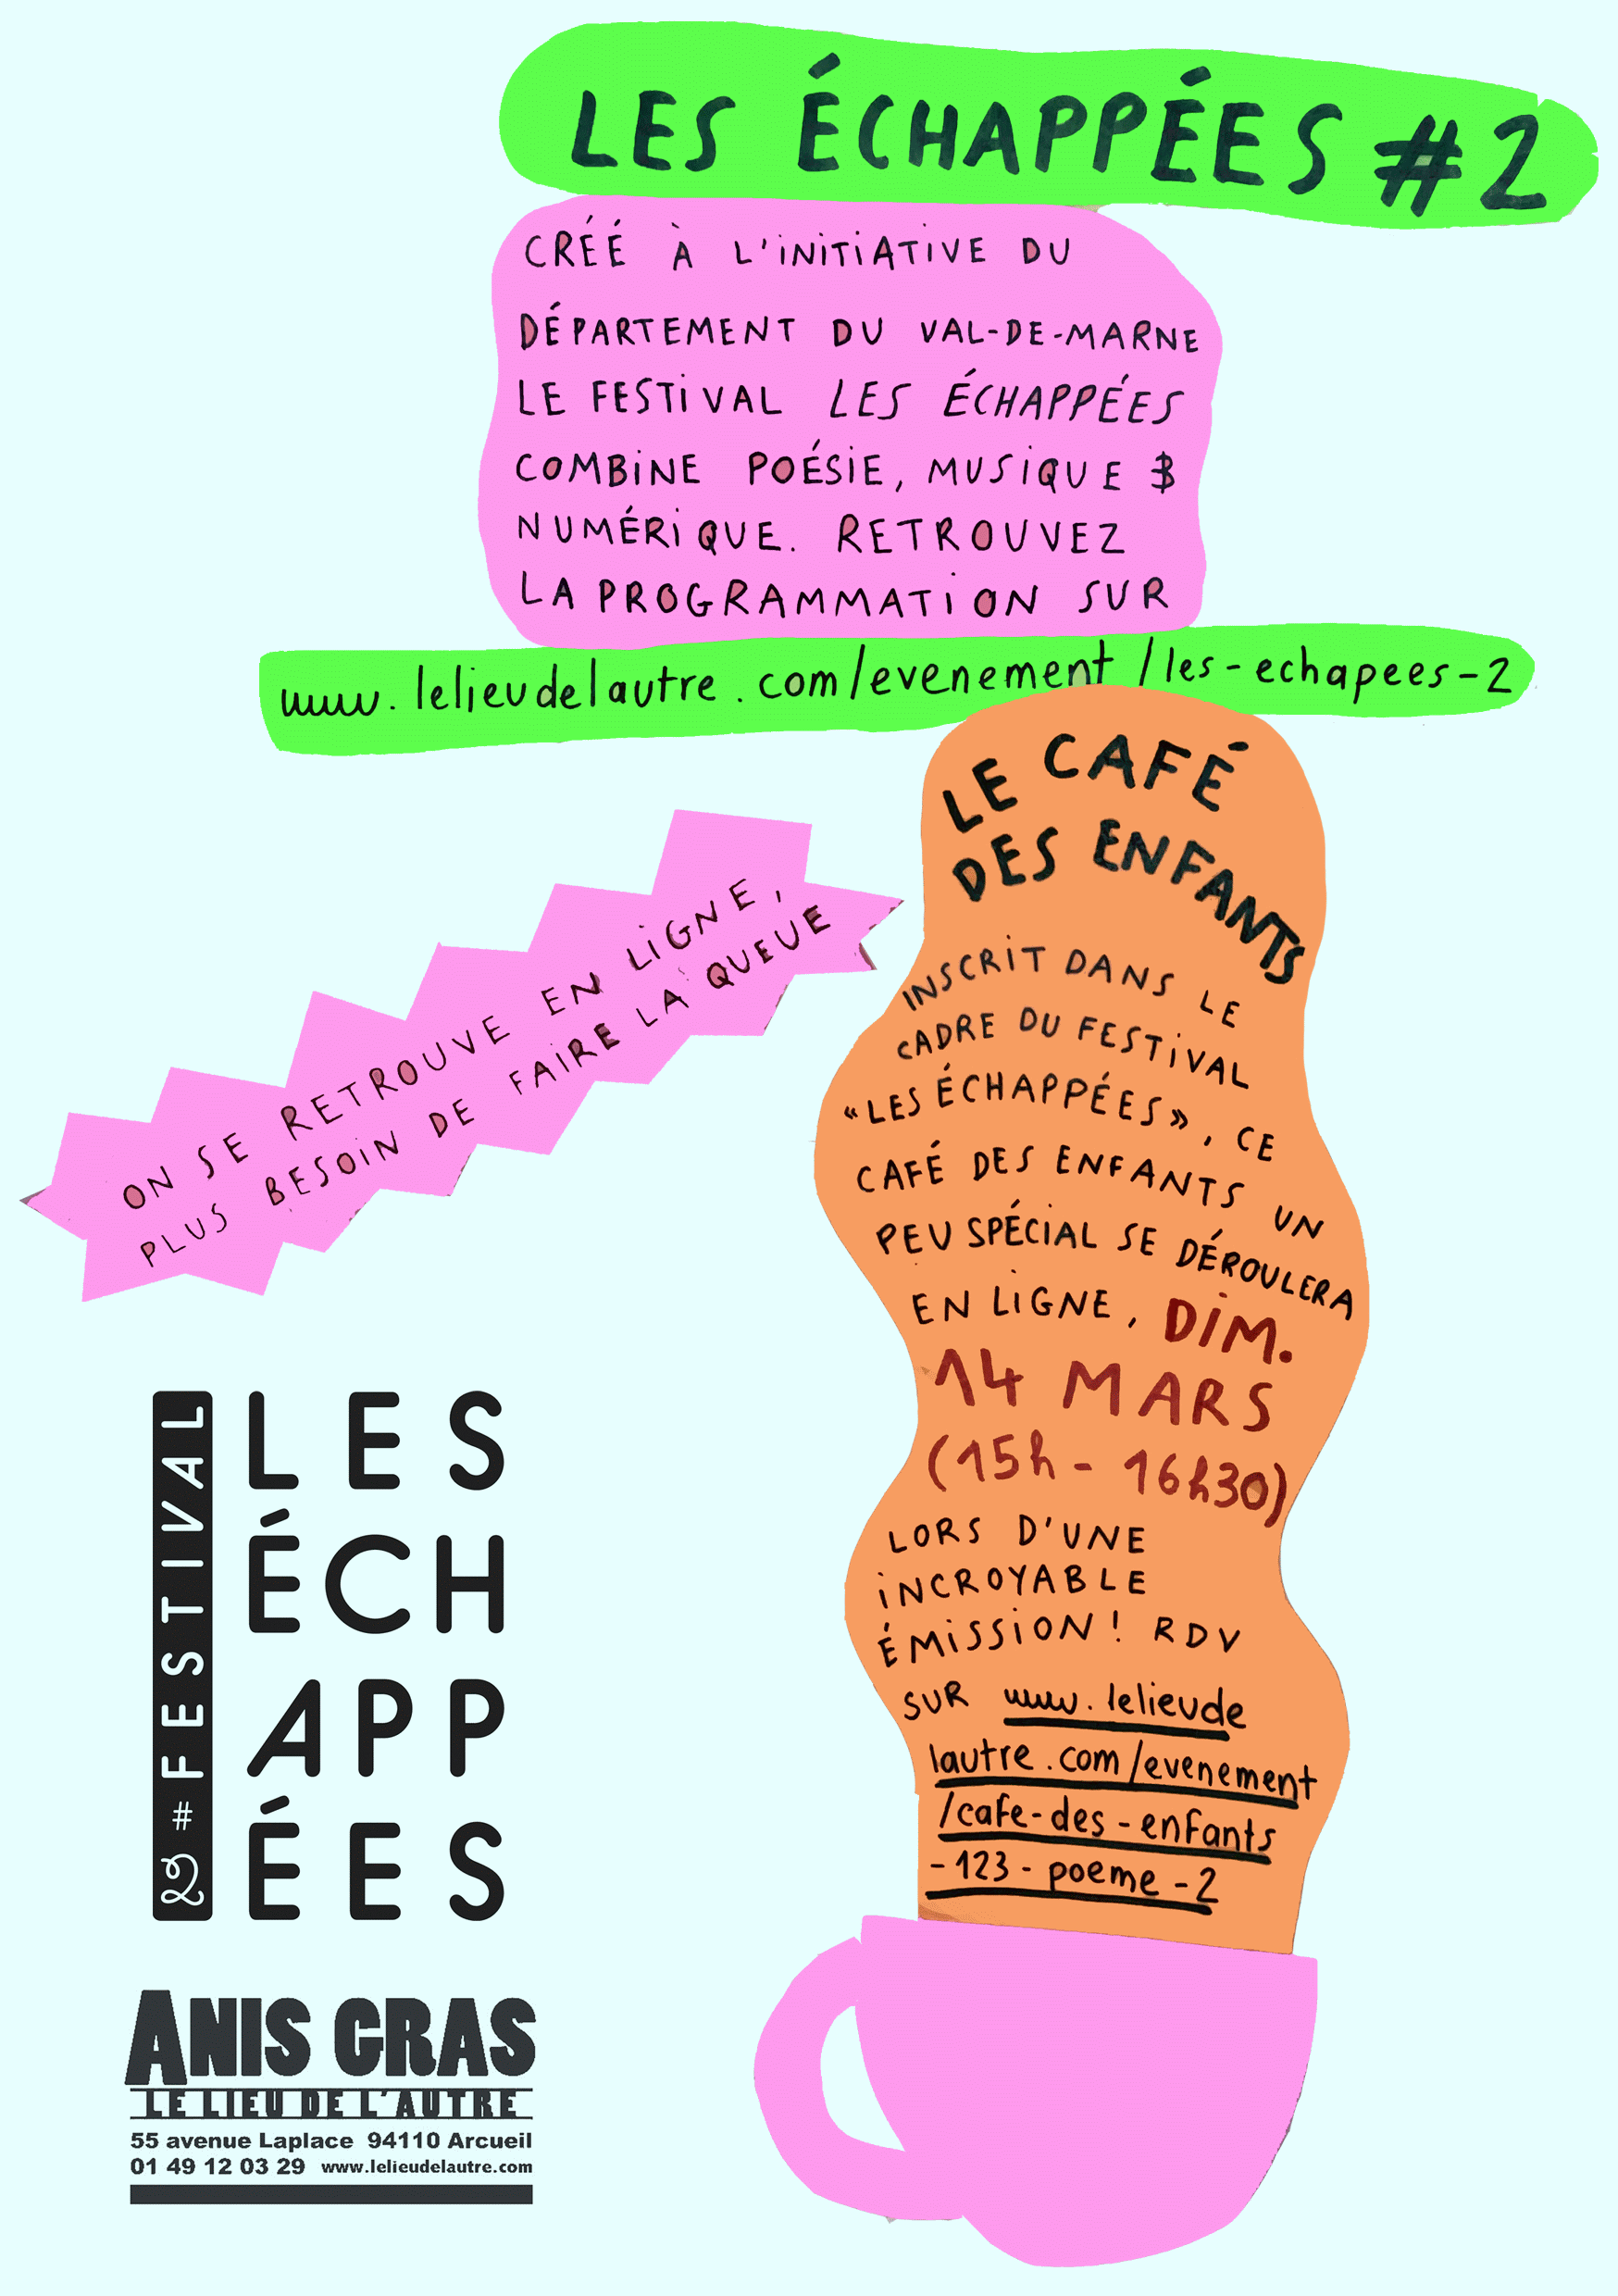 LES ÉCHAPPÉES #2
CRÉÉ À L'INITIATIVE DU
DÉPARTEMENT DU VAL-DE-MARNE
LE FESTIVAL LES ÉCHAPPÉES
COMBINE POÉSIE, MUSIQUE &
NUMÉRIQUE. RETROUVEZ
LA PROGRAMMATION SUR
www.lelieudelautre.com/evenement/les-echapees-2
LE CAFÉ
DES ENFANTS
INSCRIT DANS LE
CADRE DU FESTIVAL
« LES ÉCHAPPÉES », CE
CAFÉ DES ENFANTS UN
PEU SPÉCIAL SE DÉROULERA
EN LIGNE, DIM.
14 MARS
(15h - 16h30)
LORS D'UNE
INCROYABLE
ÉMISSION! RDV
SUR www.lelieude
lautre.com/evenement
/cafe-des-enfants
-123-poeme-2
ON SE RETROUVE EN LIGNE,
PLUS BESOIN DE FAIRE LA QUEUE
2 # FESTIVAL
LES
ÉCH
APP
ÉES
ANIS GRAS
LE LIEU DE L'AUTRE
55 avenue Laplace 94110 Arcueil
01 49 12 03 29 www.lelieudelautre.com